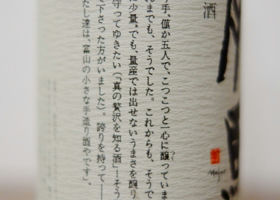 酒
手、僅か五人で、こつこつと一心に醸っていま
までも、そうでした。これからも、そうで
に少量。でも、量産では出せないうまさを醸り
守ってゆきたい(「真の贅沢を知る酒」―そう
下さった方がいました)。誇りを持って―
たし達は、富山の小さな手造り酒やです。